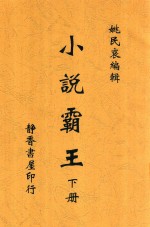 姚民哀編輯
小說霸王
下册
靜香書屋印行